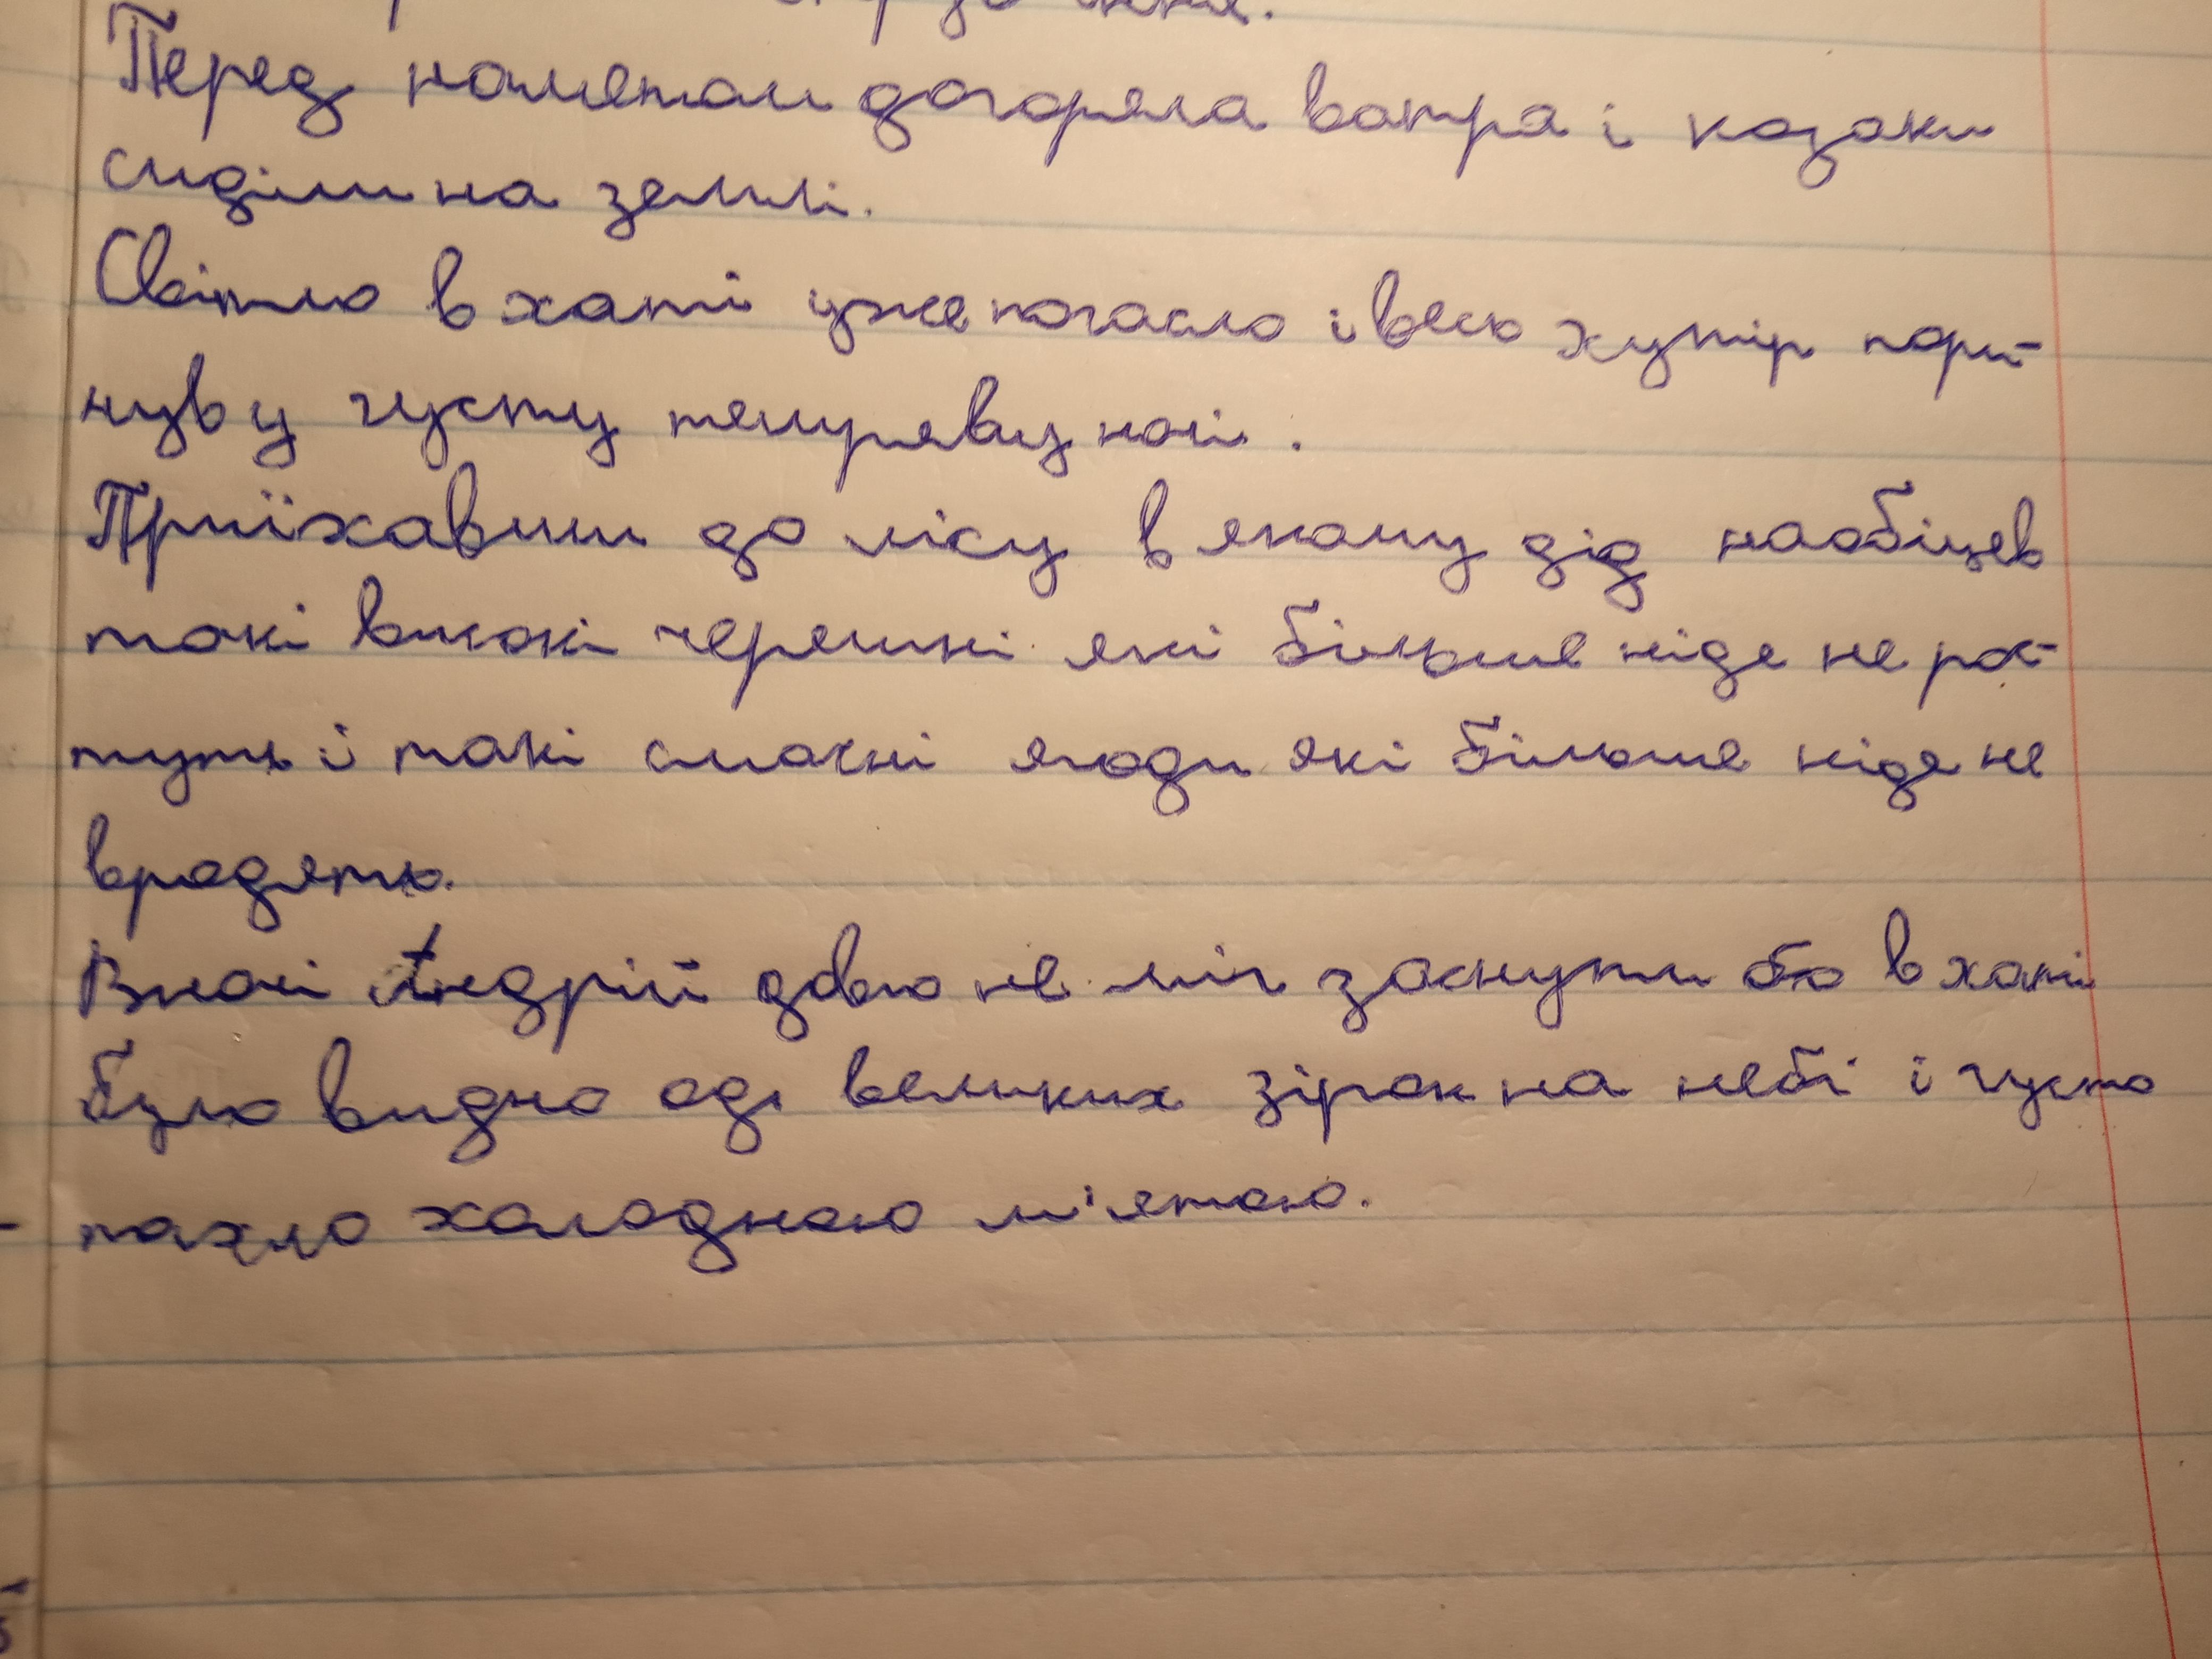 Перед наметом догоряла ватра і козаки
сиділи на землі.
Світло в хаті уже погасло і весь хутір пори-
нув у густу темряву ночі.
Приїхавши до лісу в якому дід наобіцяв
такі високі черешні які більше ніде не рос-
туть і такі смачні ягоди які більше ніде не
вродять.
Вночі Андрій довго не міг заснути бо в хаті
було видно од великих зірок на небі і густо
пахло холодною м'ятою.